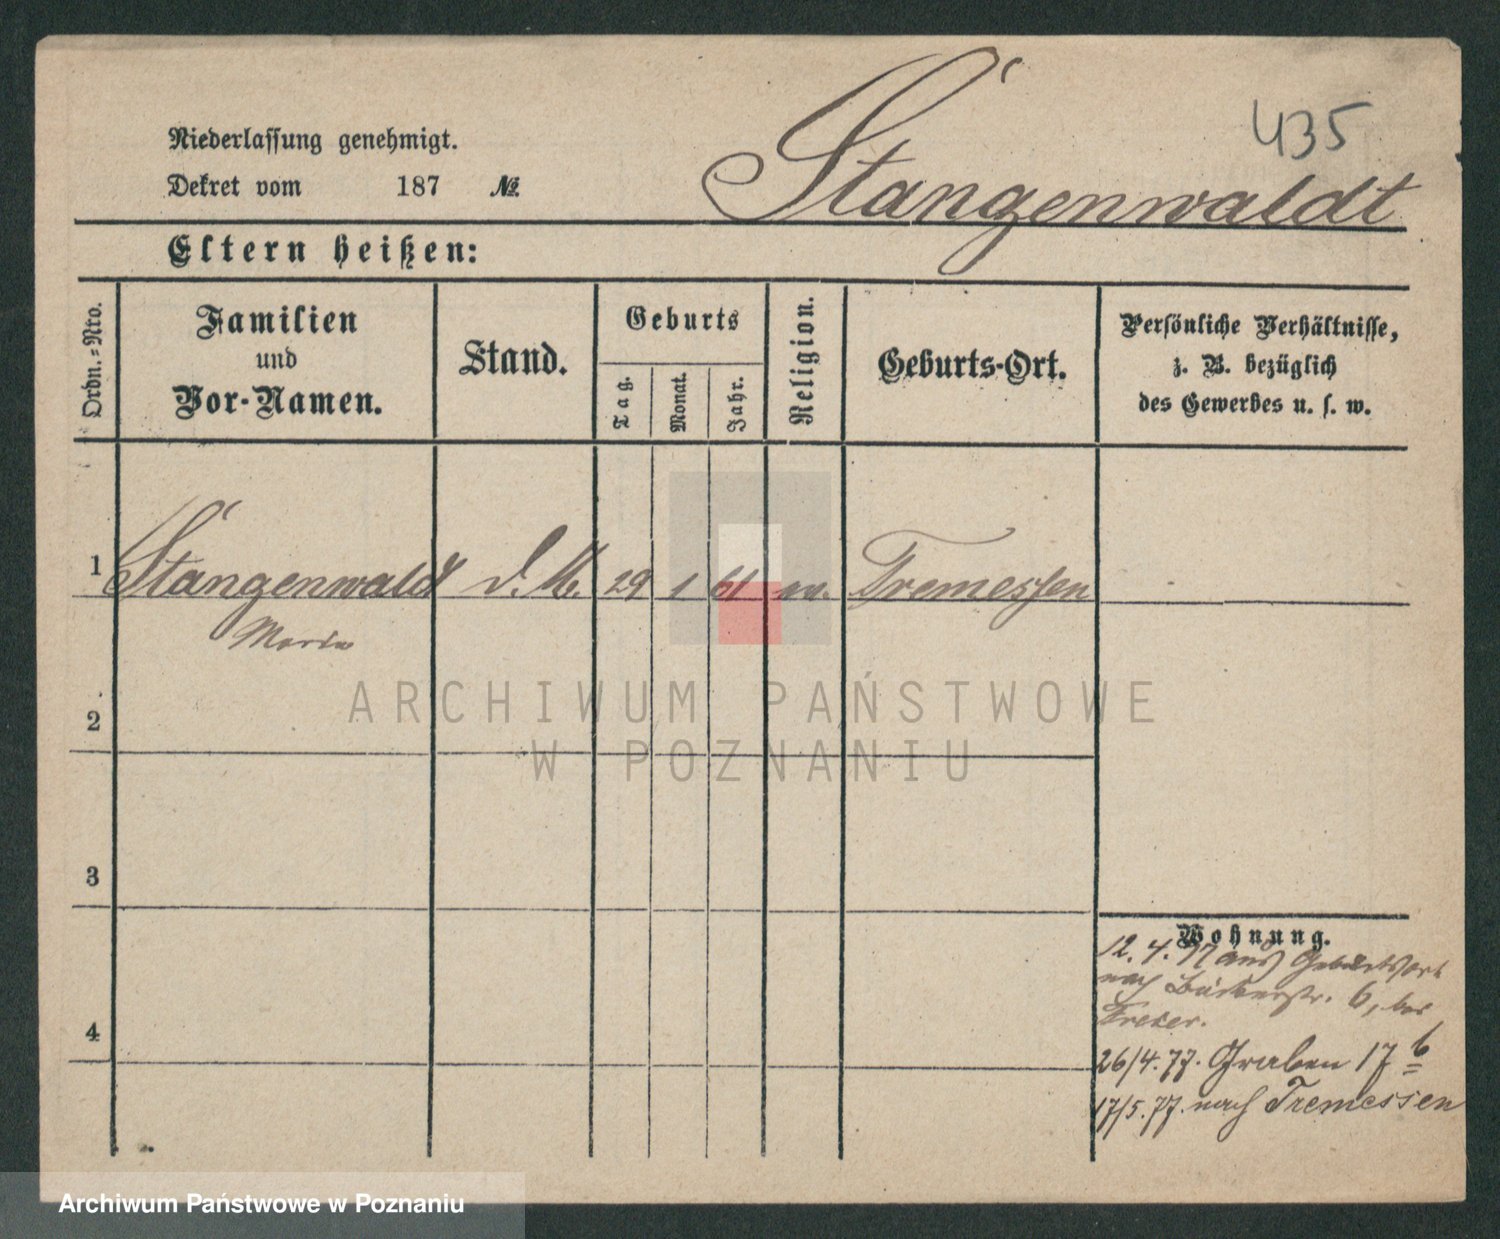 435
Niederlassung genehmigt.
Dekret vom 187 №.
Stangenwaldt
Eltern heißen:
Ordn.=Nro.
Familien
und
Vor-Namen.
Stand.
Geburts
Tag.
Monat.
Jahr.
Religion.
Geburts-Ort.
Persönliche Verhältnisse,
z. B. bezüglich
des Gewerbes u. s. w.
1 Stangenwaldt D. M. 29 1 61 ev. Tremessen
Maria
2
3
4
Wohnung.
12. 4. 77 aus Geburtsort
nach Bäckerstr. 6, bei
26/4. 77. Graben 17 b
17/5. 77. nach Tremessen
ARCHIWUM PAŃSTWOWE
W POZNANIU
Archiwum Państwowe w Poznaniu